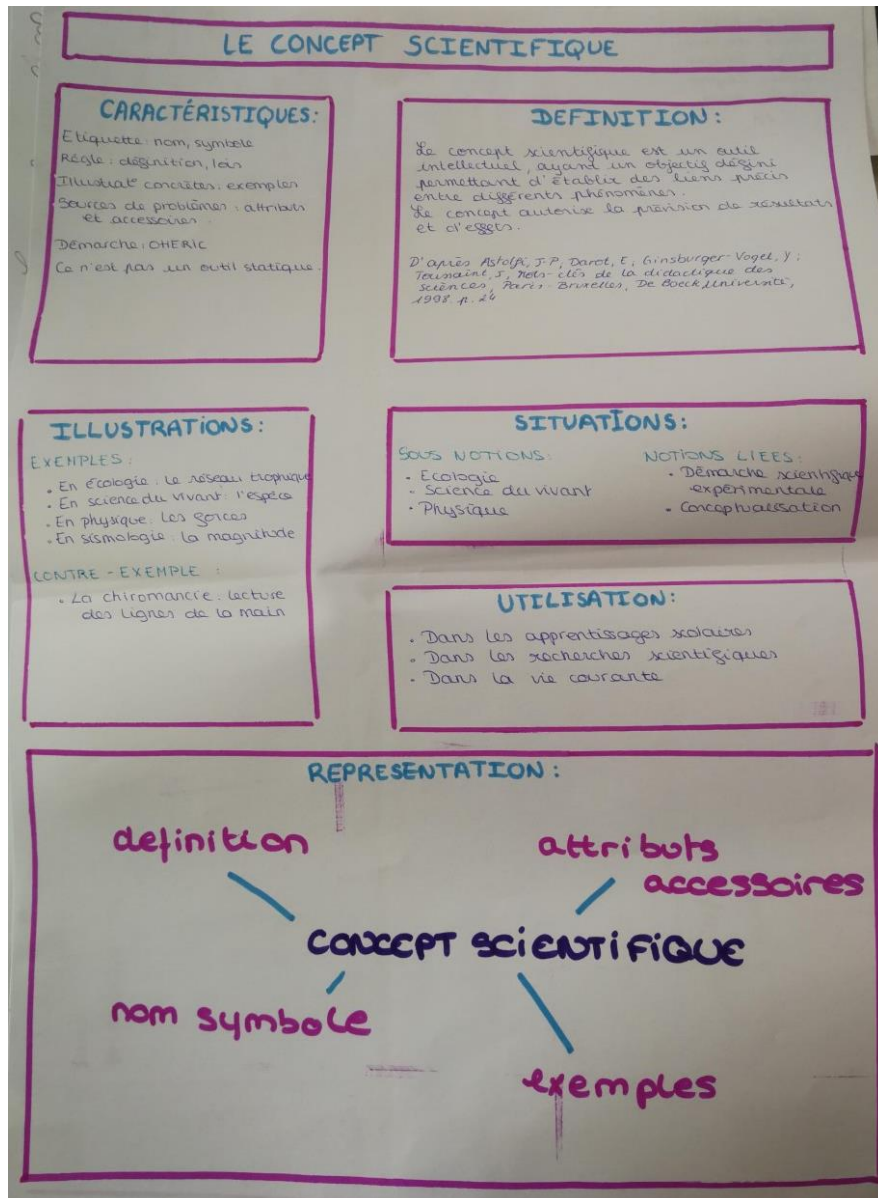 LE CONCEPT SCIENTIFIQUE
CARACTÉRISTIQUES:
Etiquette: nom, symbole
Règle: définition, lois
Illustrat° concrètes: exemples
Sources de problèmes: attributs
et accessoires.
Démarche: OHERIC
Ce n'est pas un outil statique.
DEFINITION:
Le concept scientifique est un outil
intellectuel, ayant un objectif défini
permettant d'établir des liens précis
entre différents phénomènes.
Le concept autorise la prévision de résultats
et d'effets.
D'après Astolfi, J-P, Darot, E, Ginsburger-Vogel, Y;
Toussaint, J, Mots-clés de la didactique des
sciences, Paris-Bruxelles, De Boeck Université,
1998. p. 24
ILLUSTRATIONS:
EXEMPLES:
• En écologie: le réseau trophique
• En science du vivant: l'espèce
• En physique: les forces
• En sismologie: la magnitude
CONTRE-EXEMPLE:
• La chiromancie: lecture
des lignes de la main
SITUATIONS:
SOUS NOTIONS:
• Ecologie
• Science du vivant
• Physique
NOTIONS LIEES:
• Démarche scientifique
expérimentale
• Conceptualisation
UTILISATION:
• Dans les apprentissages scolaires
• Dans les recherches scientifiques
• Dans la vie courante
REPRESENTATION:
definition
attributs
accessoires
CONCEPT SCIENTIFIQUE
nom symbole
exemples